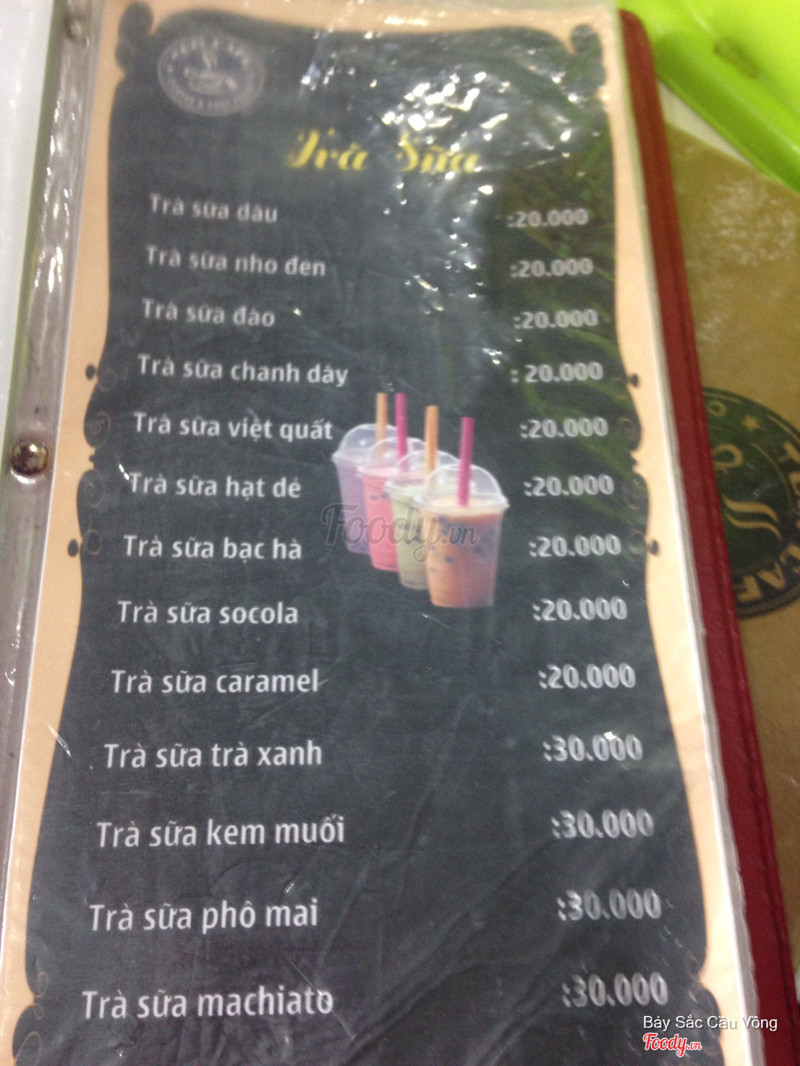 Trà Sữa
Trà sữa dâu :20.000
Trà sữa nho đen :20.000
Trà sữa đào :20.000
Trà sữa chanh dây : 20.000
Trà sữa việt quất :20.000
Trà sữa hạt dẻ :20.000
Trà sữa bạc hà :20.000
Trà sữa socola :20.000
Trà sữa caramel :20.000
Trà sữa trà xanh :30.000
Trà sữa kem muối :30.000
Trà sữa phô mai :30.000
Trà sữa machiato :30.000
Foody.vn
Bảy Sắc Cầu Vồng
Foody.vn